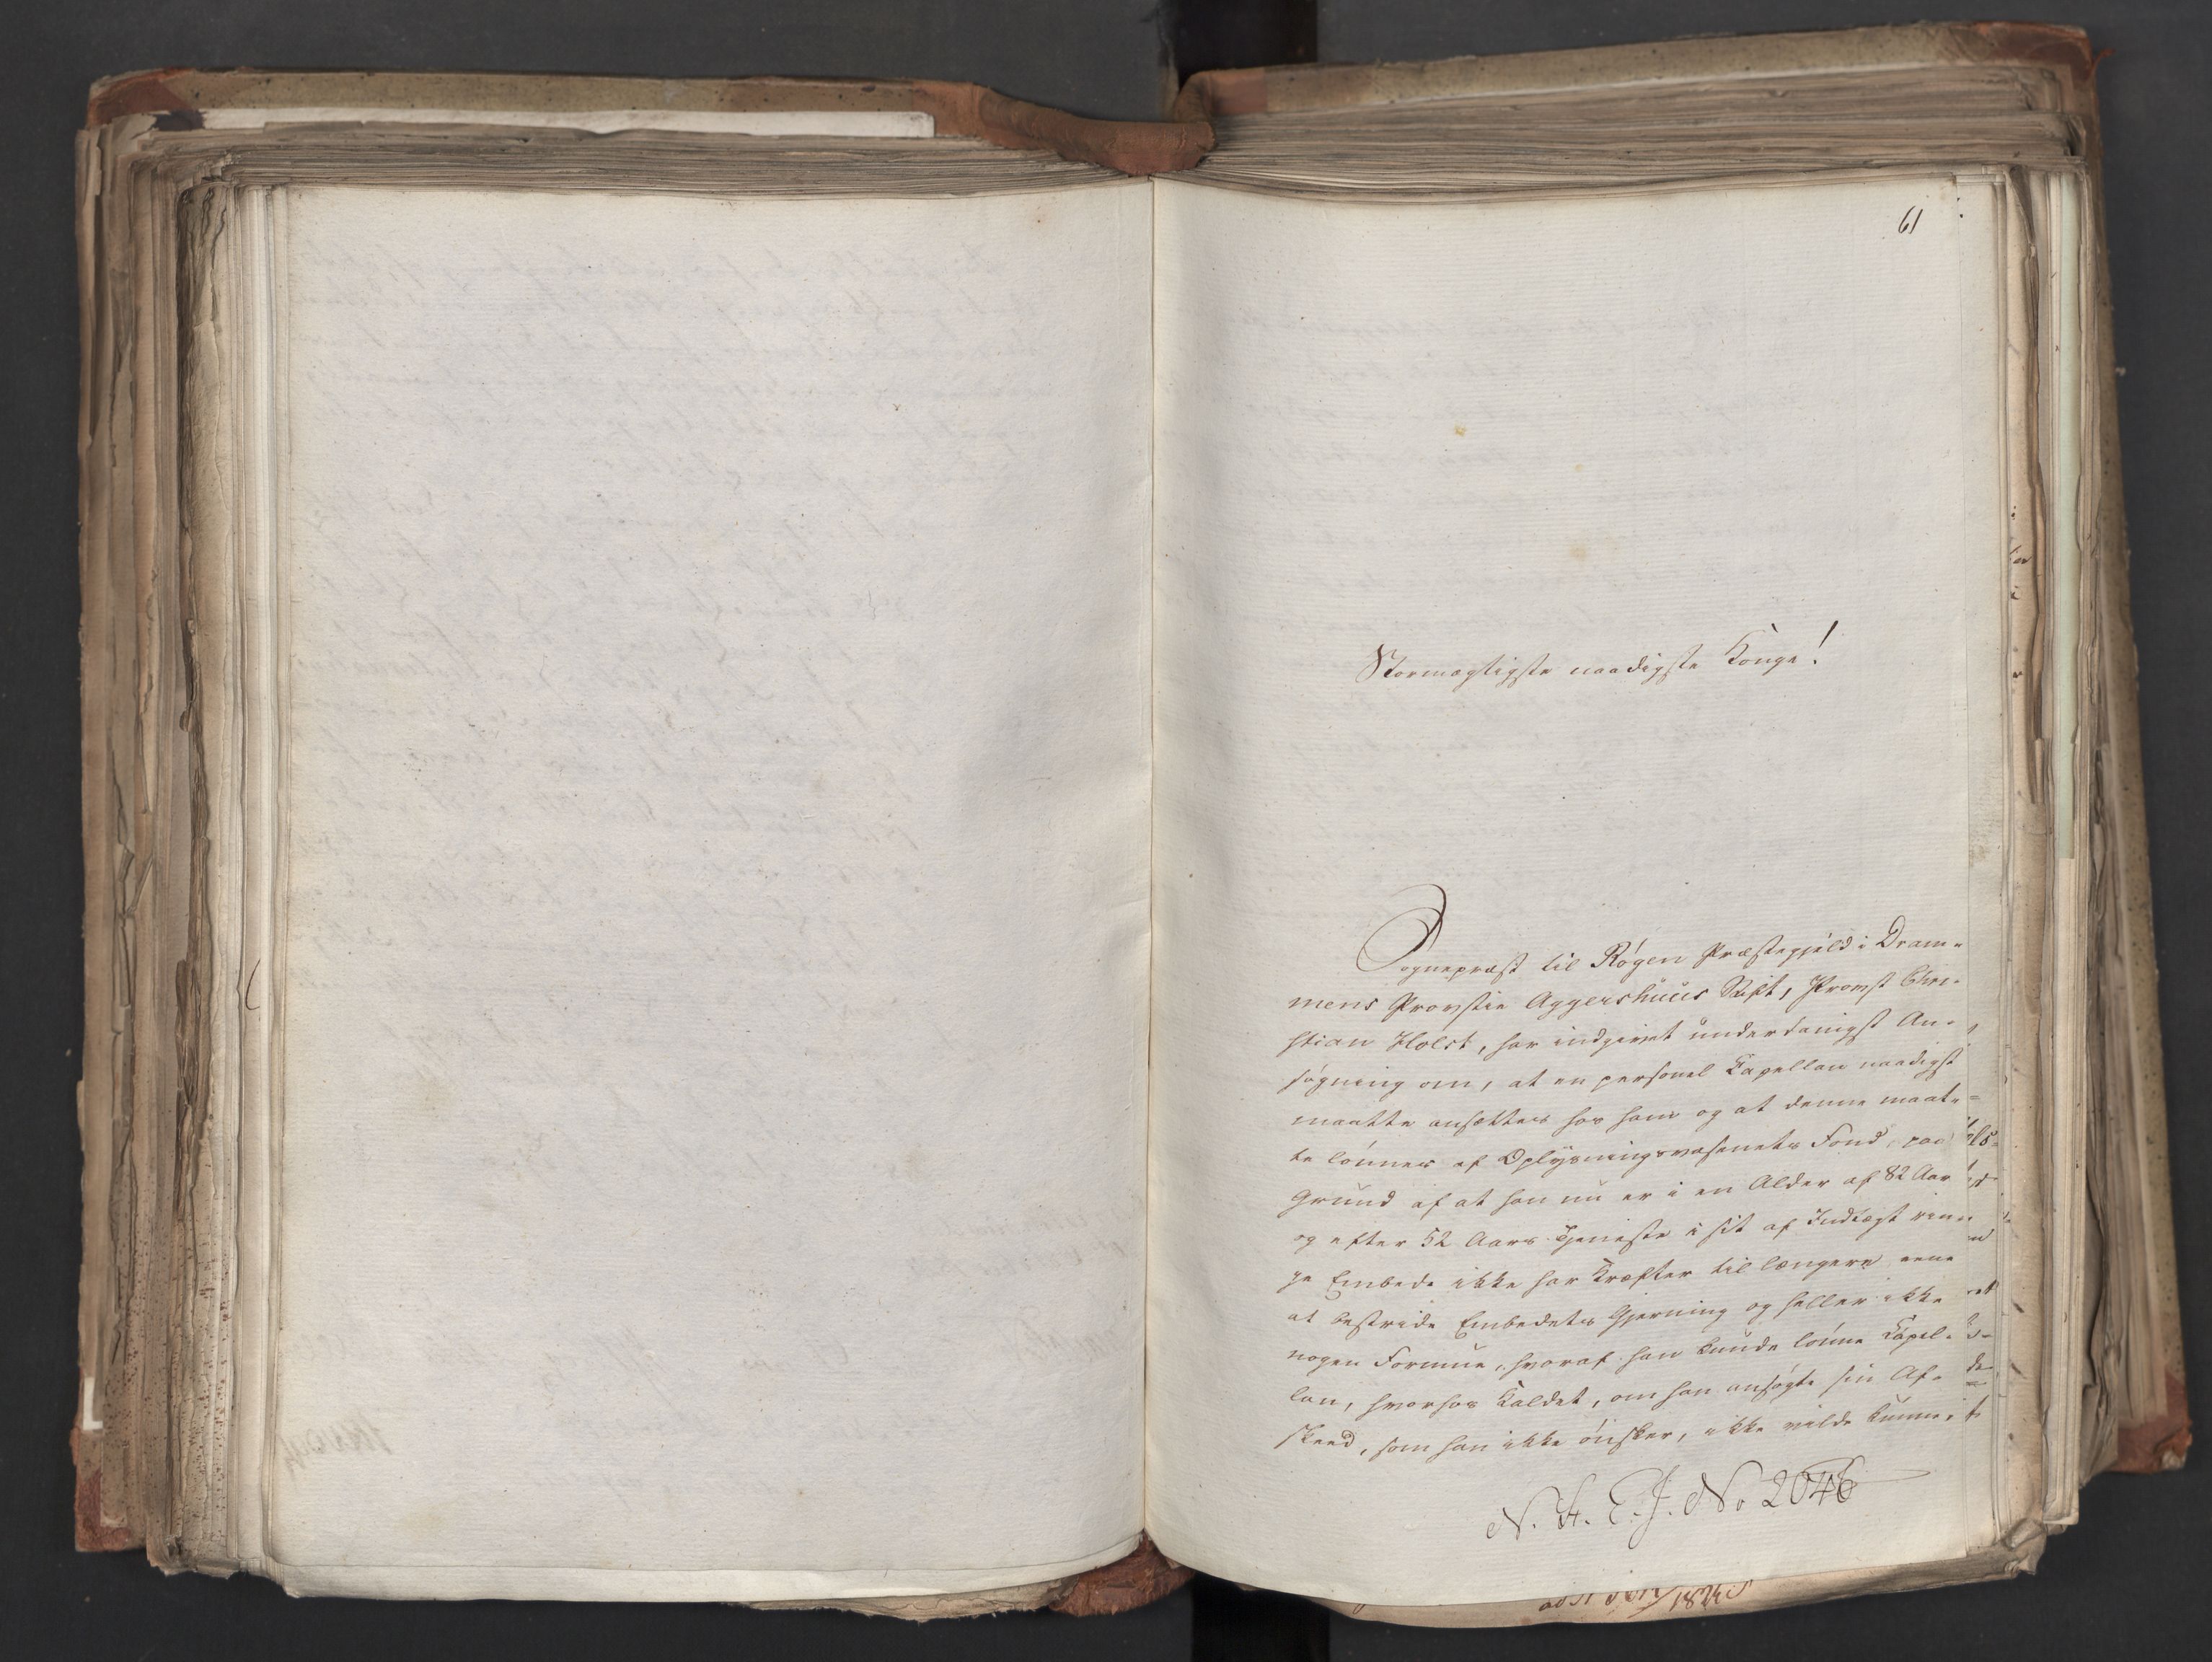 61
Stormægtigste naadigste Konge!
Sognepræst til Røgen Præstegjeld i Dram-
mens Provstie Aggershuus Stift, Provst Chri-
stian Holst, har indgivet underdanigst An-
søgning om, at en personel Capellan naadigst
maatte ansættes hos ham og at denne maat-
te lønnes af Oplysningsvæsenets Fond, paa
Grund af at han nu er i en Alder af 82 Aar
og efter 52 Aars Tjeneste i sit af Indtægt rin-
ge Embede ikke har Kræfter til længere ene
at bestride Embedets Gjerning og heller ikke
nogen Formue, hvoraf han kunde lønne Capel-
lan, hvorhos Kaldet, om han ansøgte sin Af-
skeed, som han ikke ønsker, ikke vilde kunne
N. H. E. J. No 2046